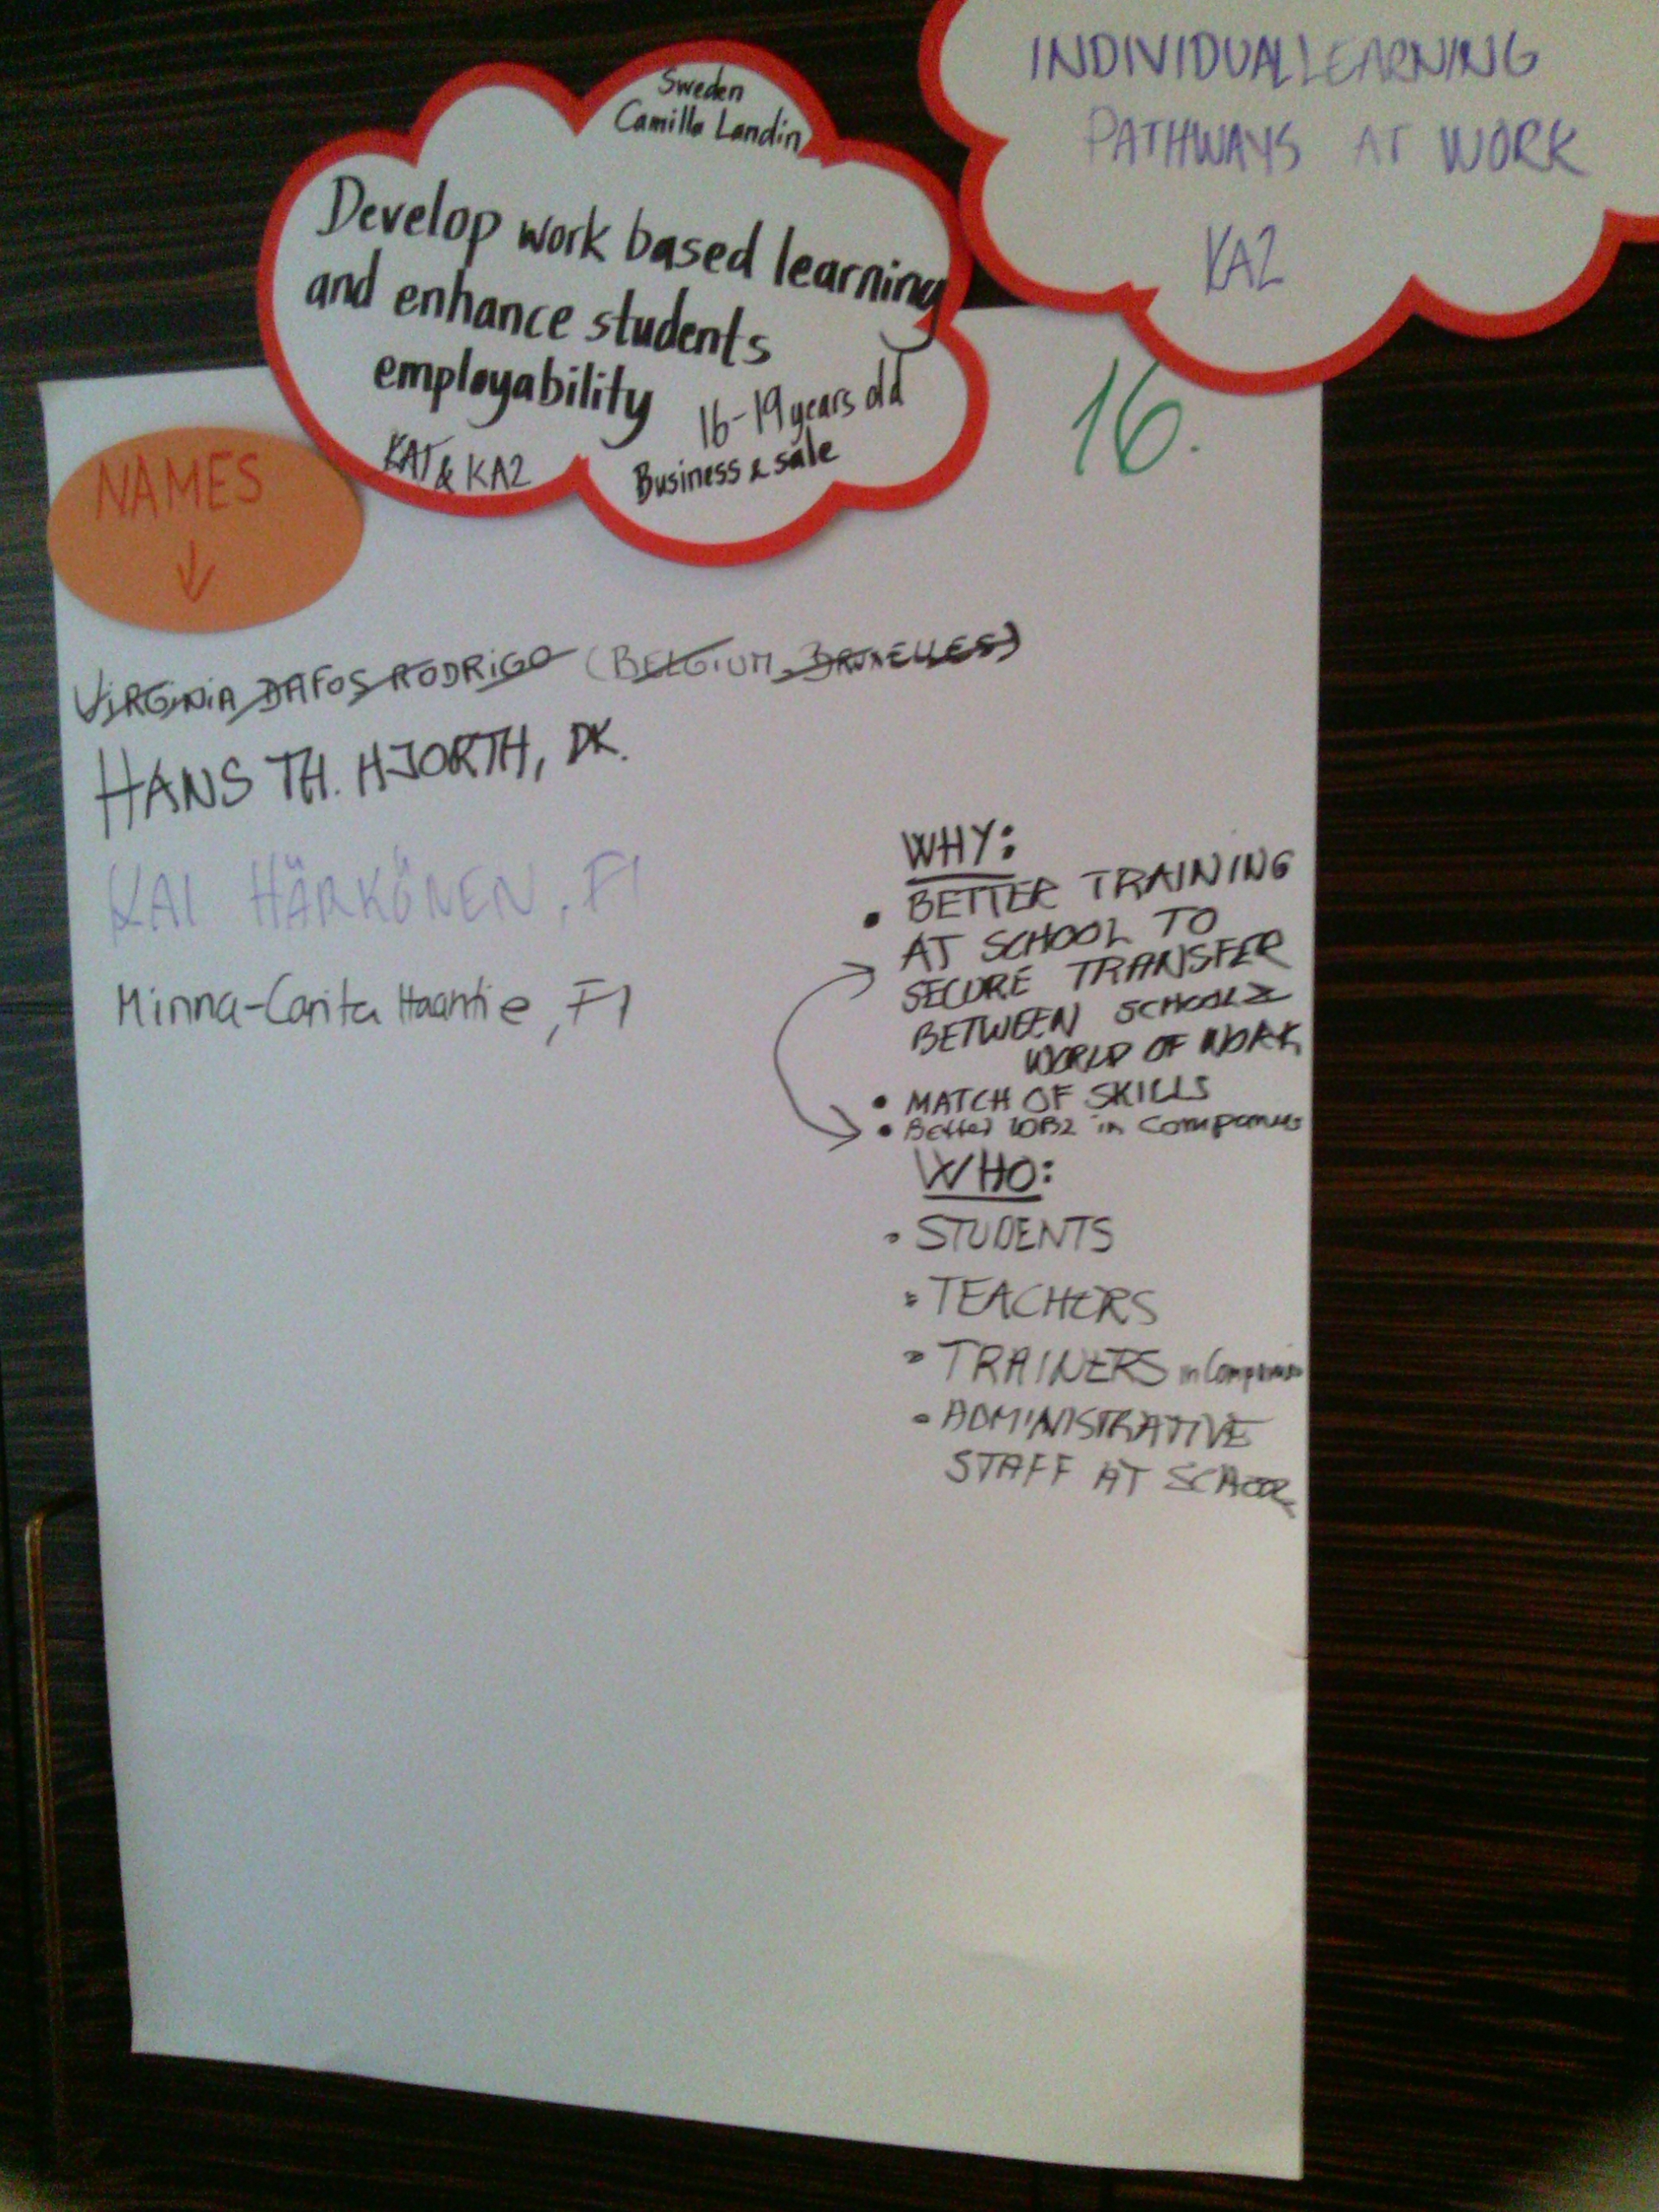 Sweden
Camilla Landin
Develop work based learning
and enhance students
employability
16-19 years old
KA1 & KA2
Business & sale
INDIVIDUAL LEARNING
PATHWAYS AT WORK
KA2
16.
NAMES
↓
VIRGINIA DAFOS RODRIGO (BELGIUM, BRUXELLES)
HANS TH. HJORTH, DK.
KAI HÄRKÖNEN, FI
Minna-Carita Haantie, FI
WHY:
• BETTER TRAINING
AT SCHOOL TO
SECURE TRANSFER
BETWEEN SCHOOL &
WORLD OF WORK
• MATCH OF SKILLS
• Better in Companies
WHO:
• STUDENTS
• TEACHERS
• TRAINERS in Companies
• ADMINISTRATIVE
STAFF AT SCHOOL